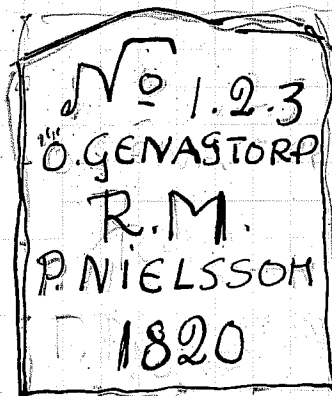 No 1.2.3
Ö.GENASTORP
R.M.
P.NIELSSON
1820